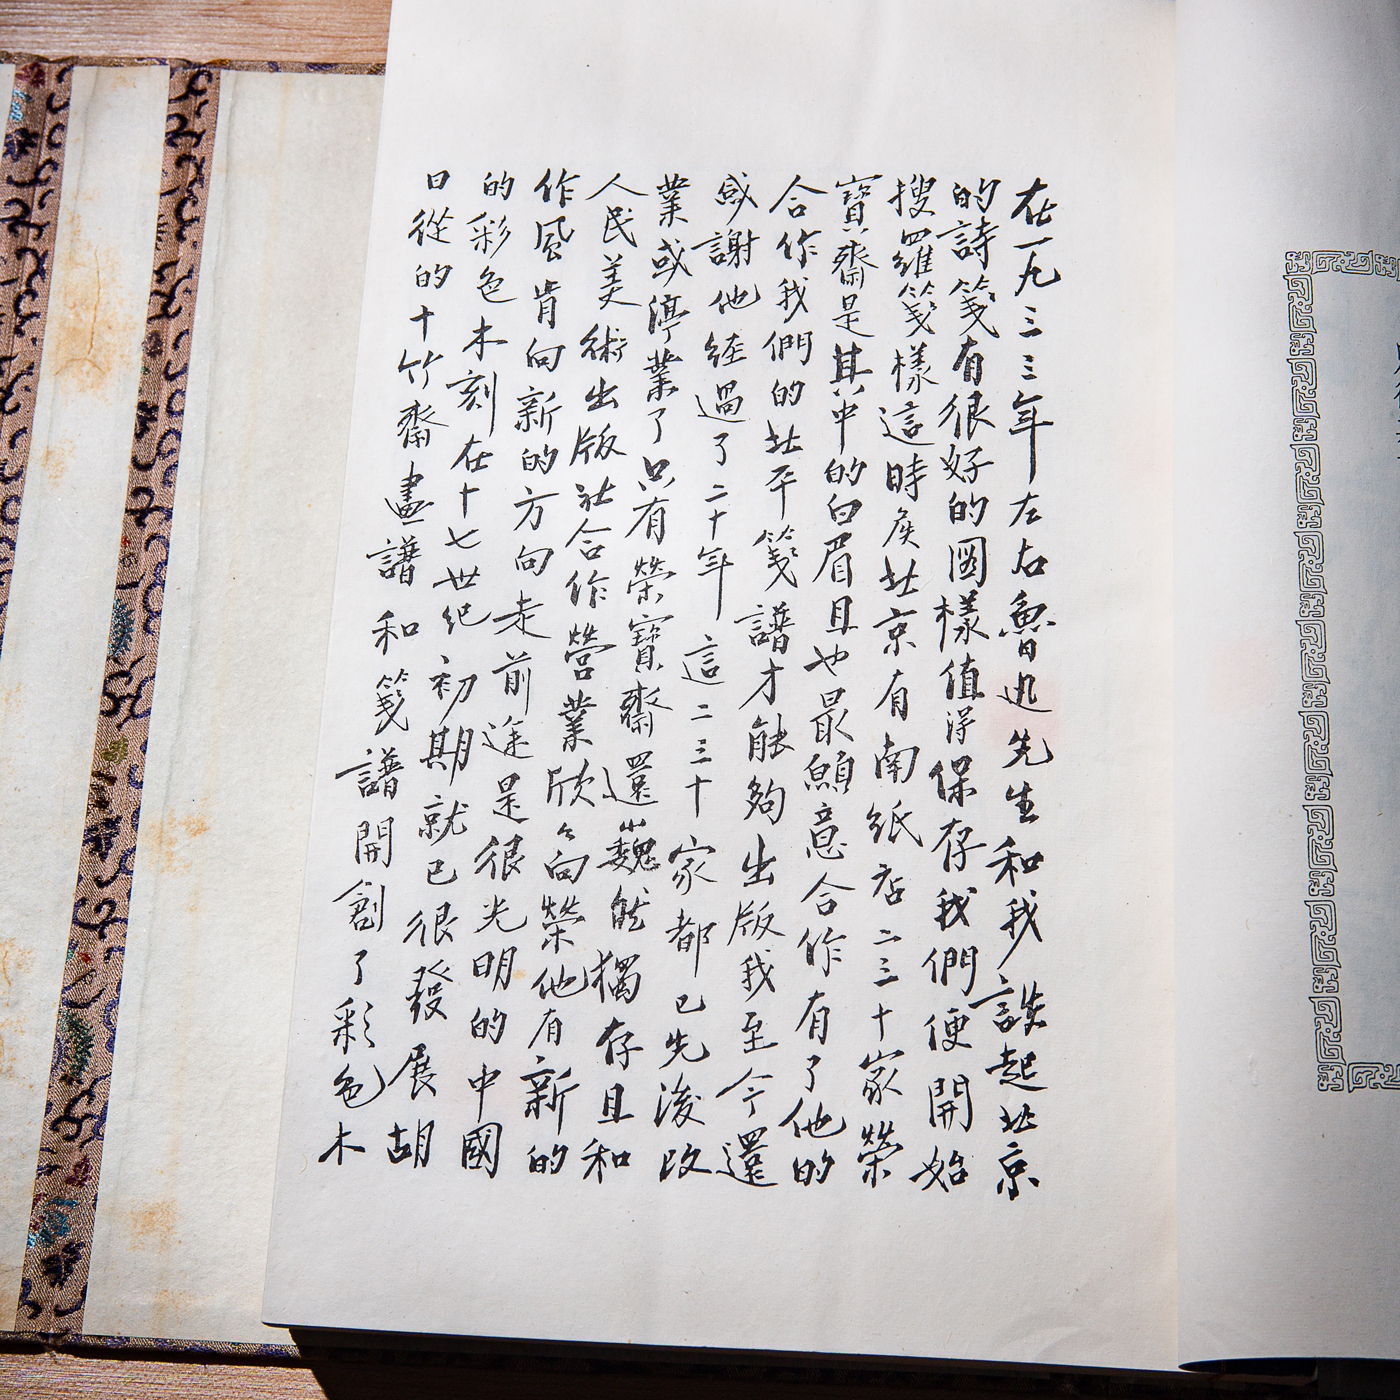 在一九三三年左右魯迅先生和我談起北京
的詩箋有很好的圖樣值得保存我們便開始
搜羅箋樣這時候北京有南紙店二三十家榮
寶齋是其中的白眉且也最願意合作有了他的
合作我們的北平箋譜才能夠出版我至今還
感謝他經過了二十年這二三十家都已先後改
業或渟業了只有榮寶齋還巍然獨存且和
人民美術出版社合作營業欣欣向榮他有新的
作風肯向新的方向走前途是很光明的中國
的彩色木刻在十七世紀初期就已很發展胡
日從的十竹齋畫譜和箋譜開創了彩色木